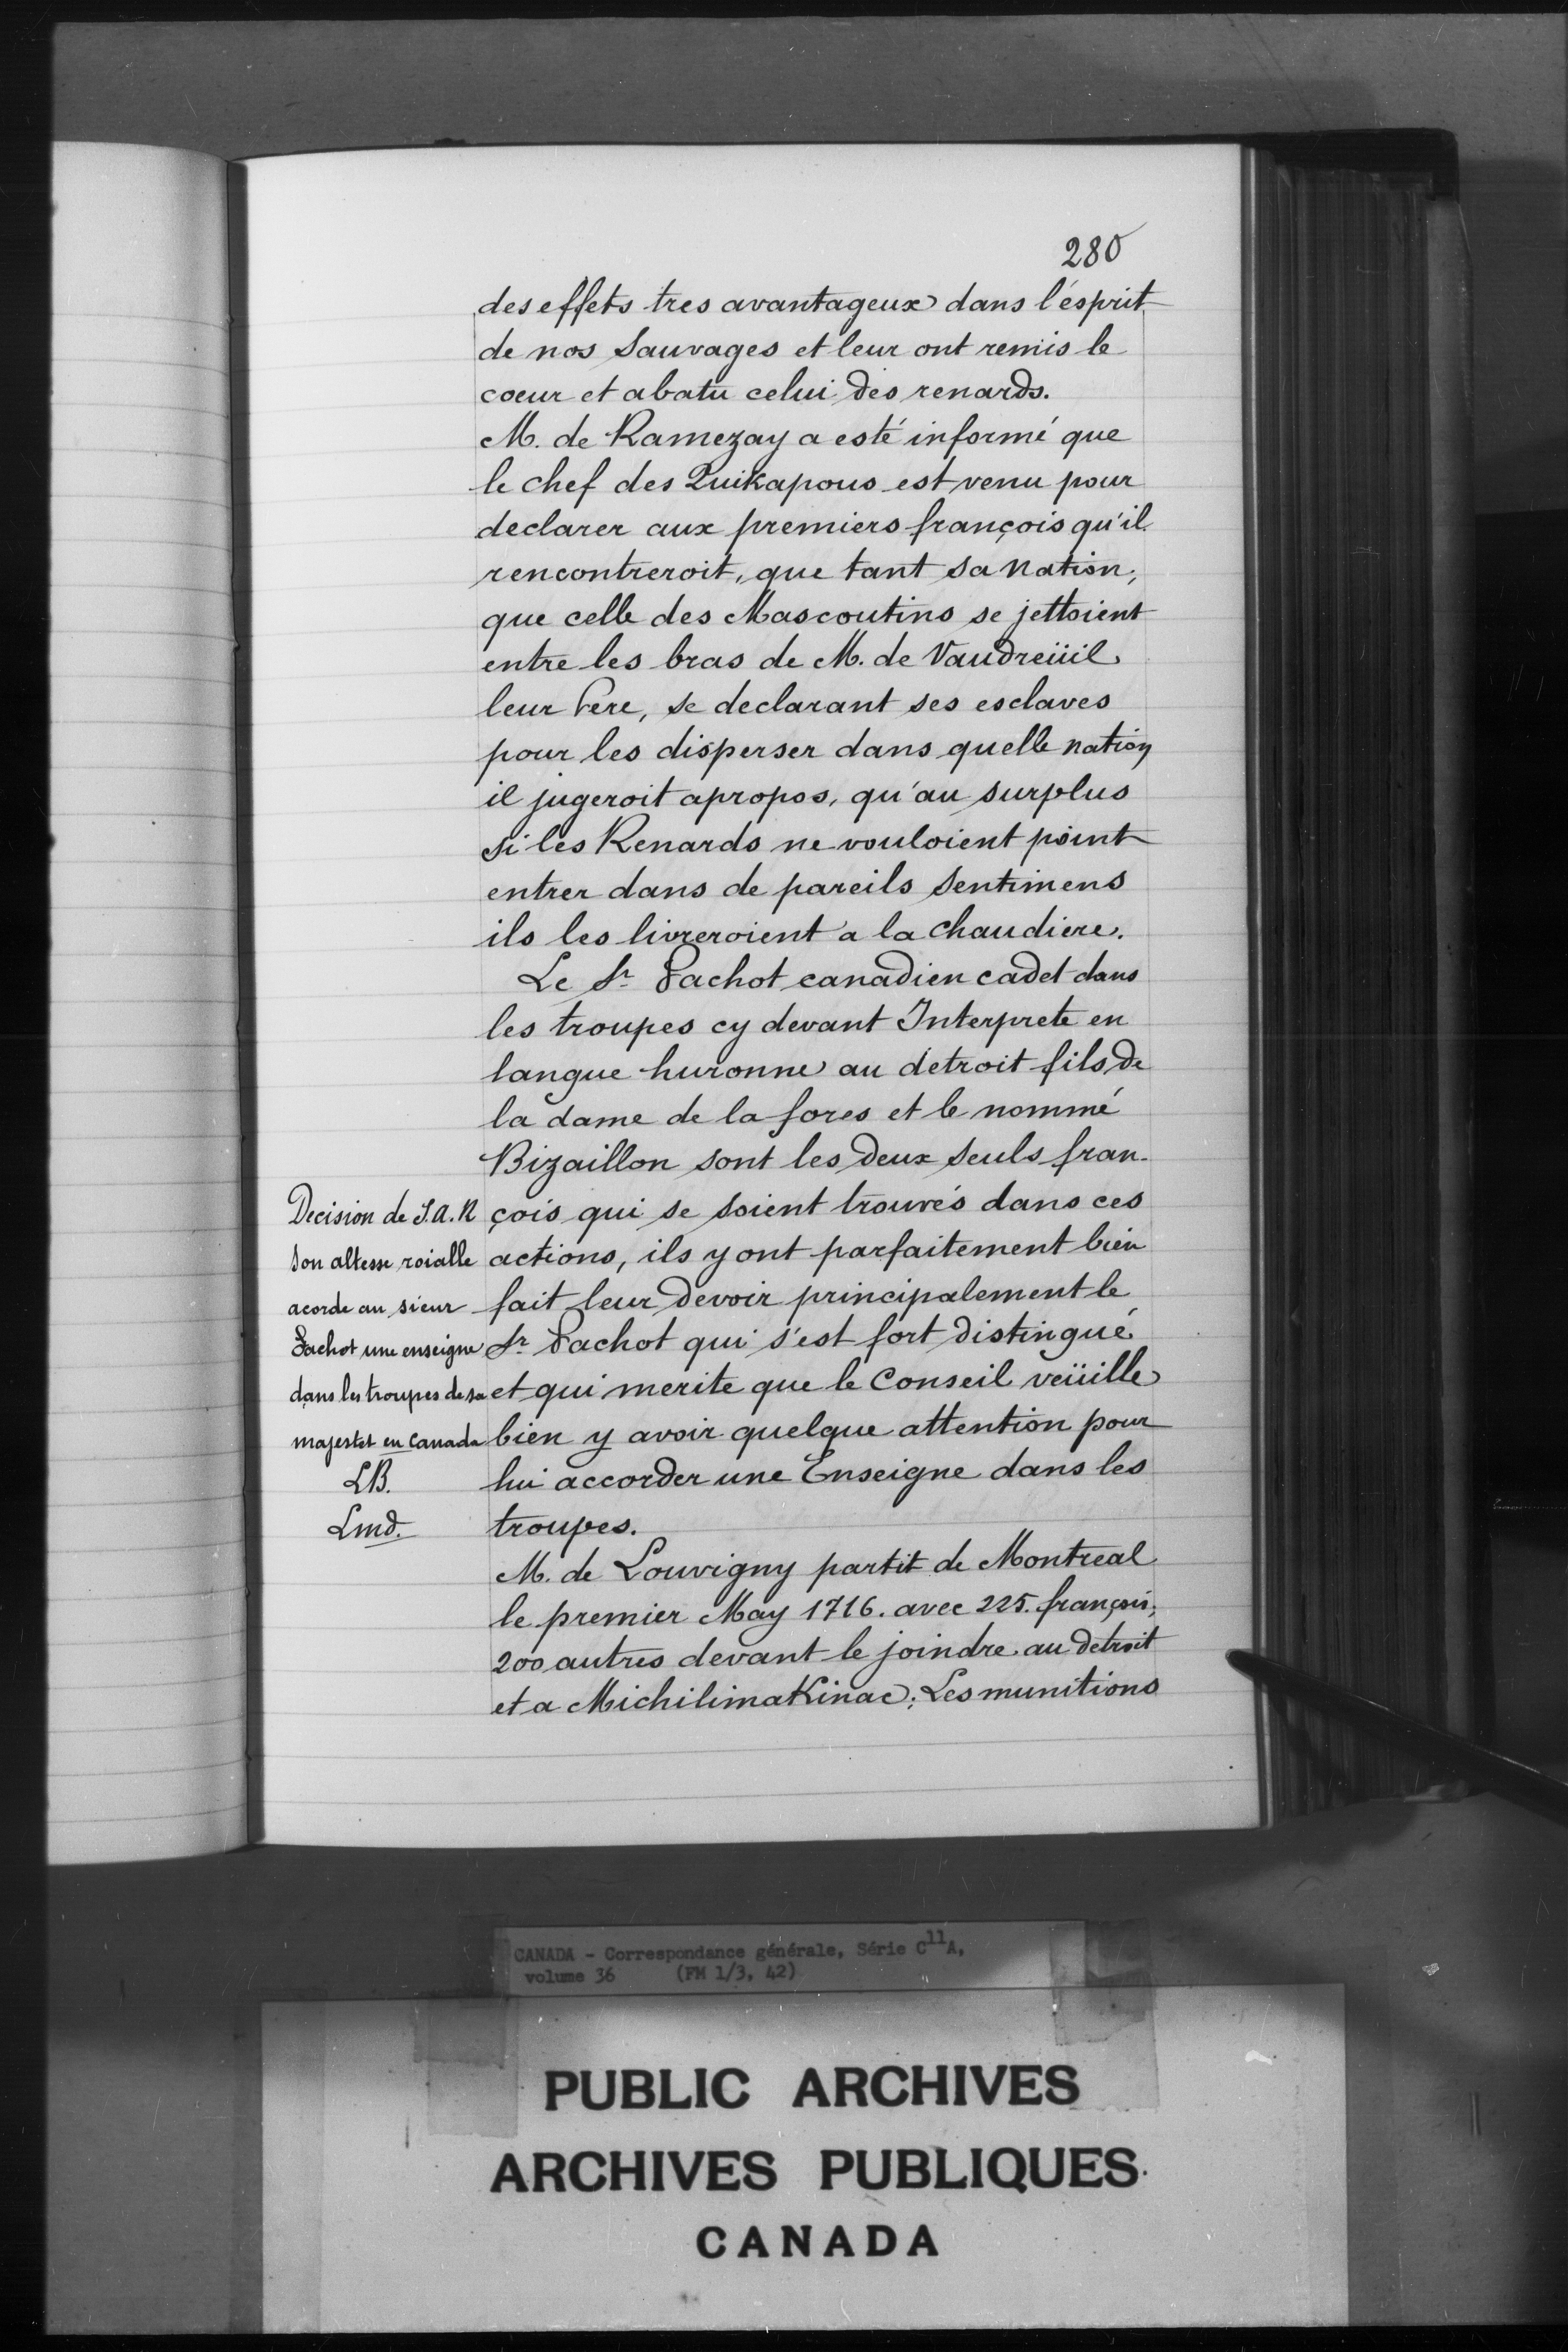 280
des effets tres avantageux dans l'ésprit
de nos Sauvages et leur ont remis le
coeur et abatu celui des renards.
M. de Ramezay a esté informé que
le chef des Quikapous est venu pour
declarer aux premiers françois qu'il
rencontreroit, que tant sa Nation,
que celle des Mascoutins se jettoient
entre les bras de M. de Vaudreüil
leur Pere, se declarant ses esclaves
pour les disperser dans quelle nation
il jugeroit apropos, qu'au surplus
si les Renards ne vouloient point
entrer dans de pareils sentimens
ils les livreroient a la chaudiere.
Le Sr. Pachot canadien cadet dans
les troupes cy devant Interprete en
langue huronne au détroit fils de
la dame de la fores et le nommé
Bizaillon sont les deux seuls fran-
çois qui se soient trouvés dans ces
actions, ils y ont parfaitement bien
fait leur devoir principalement le
Sr. Pachot qui s'est fort distingué
et qui merite que le Conseil veüille
bien y avoir quelque attention pour
lui accorder une Enseigne dans les
troupes.
M. de Louvigny partit de Montreal
le premier May 1716. avec 225. françois,
200 autres devant le joindre au detroit
et a Michilimakinac; Les munitions
Decision de S.A.R
Son altesse roialle
acorde au sieur
Pachot une enseigne
dans les troupes de sa
majestet en Canada
LB.
Lmd.
CANADA - Correspondance générale, Série C11A,
volume 36 (FM 1/3, 42)
PUBLIC ARCHIVES
ARCHIVES PUBLIQUES
CANADA